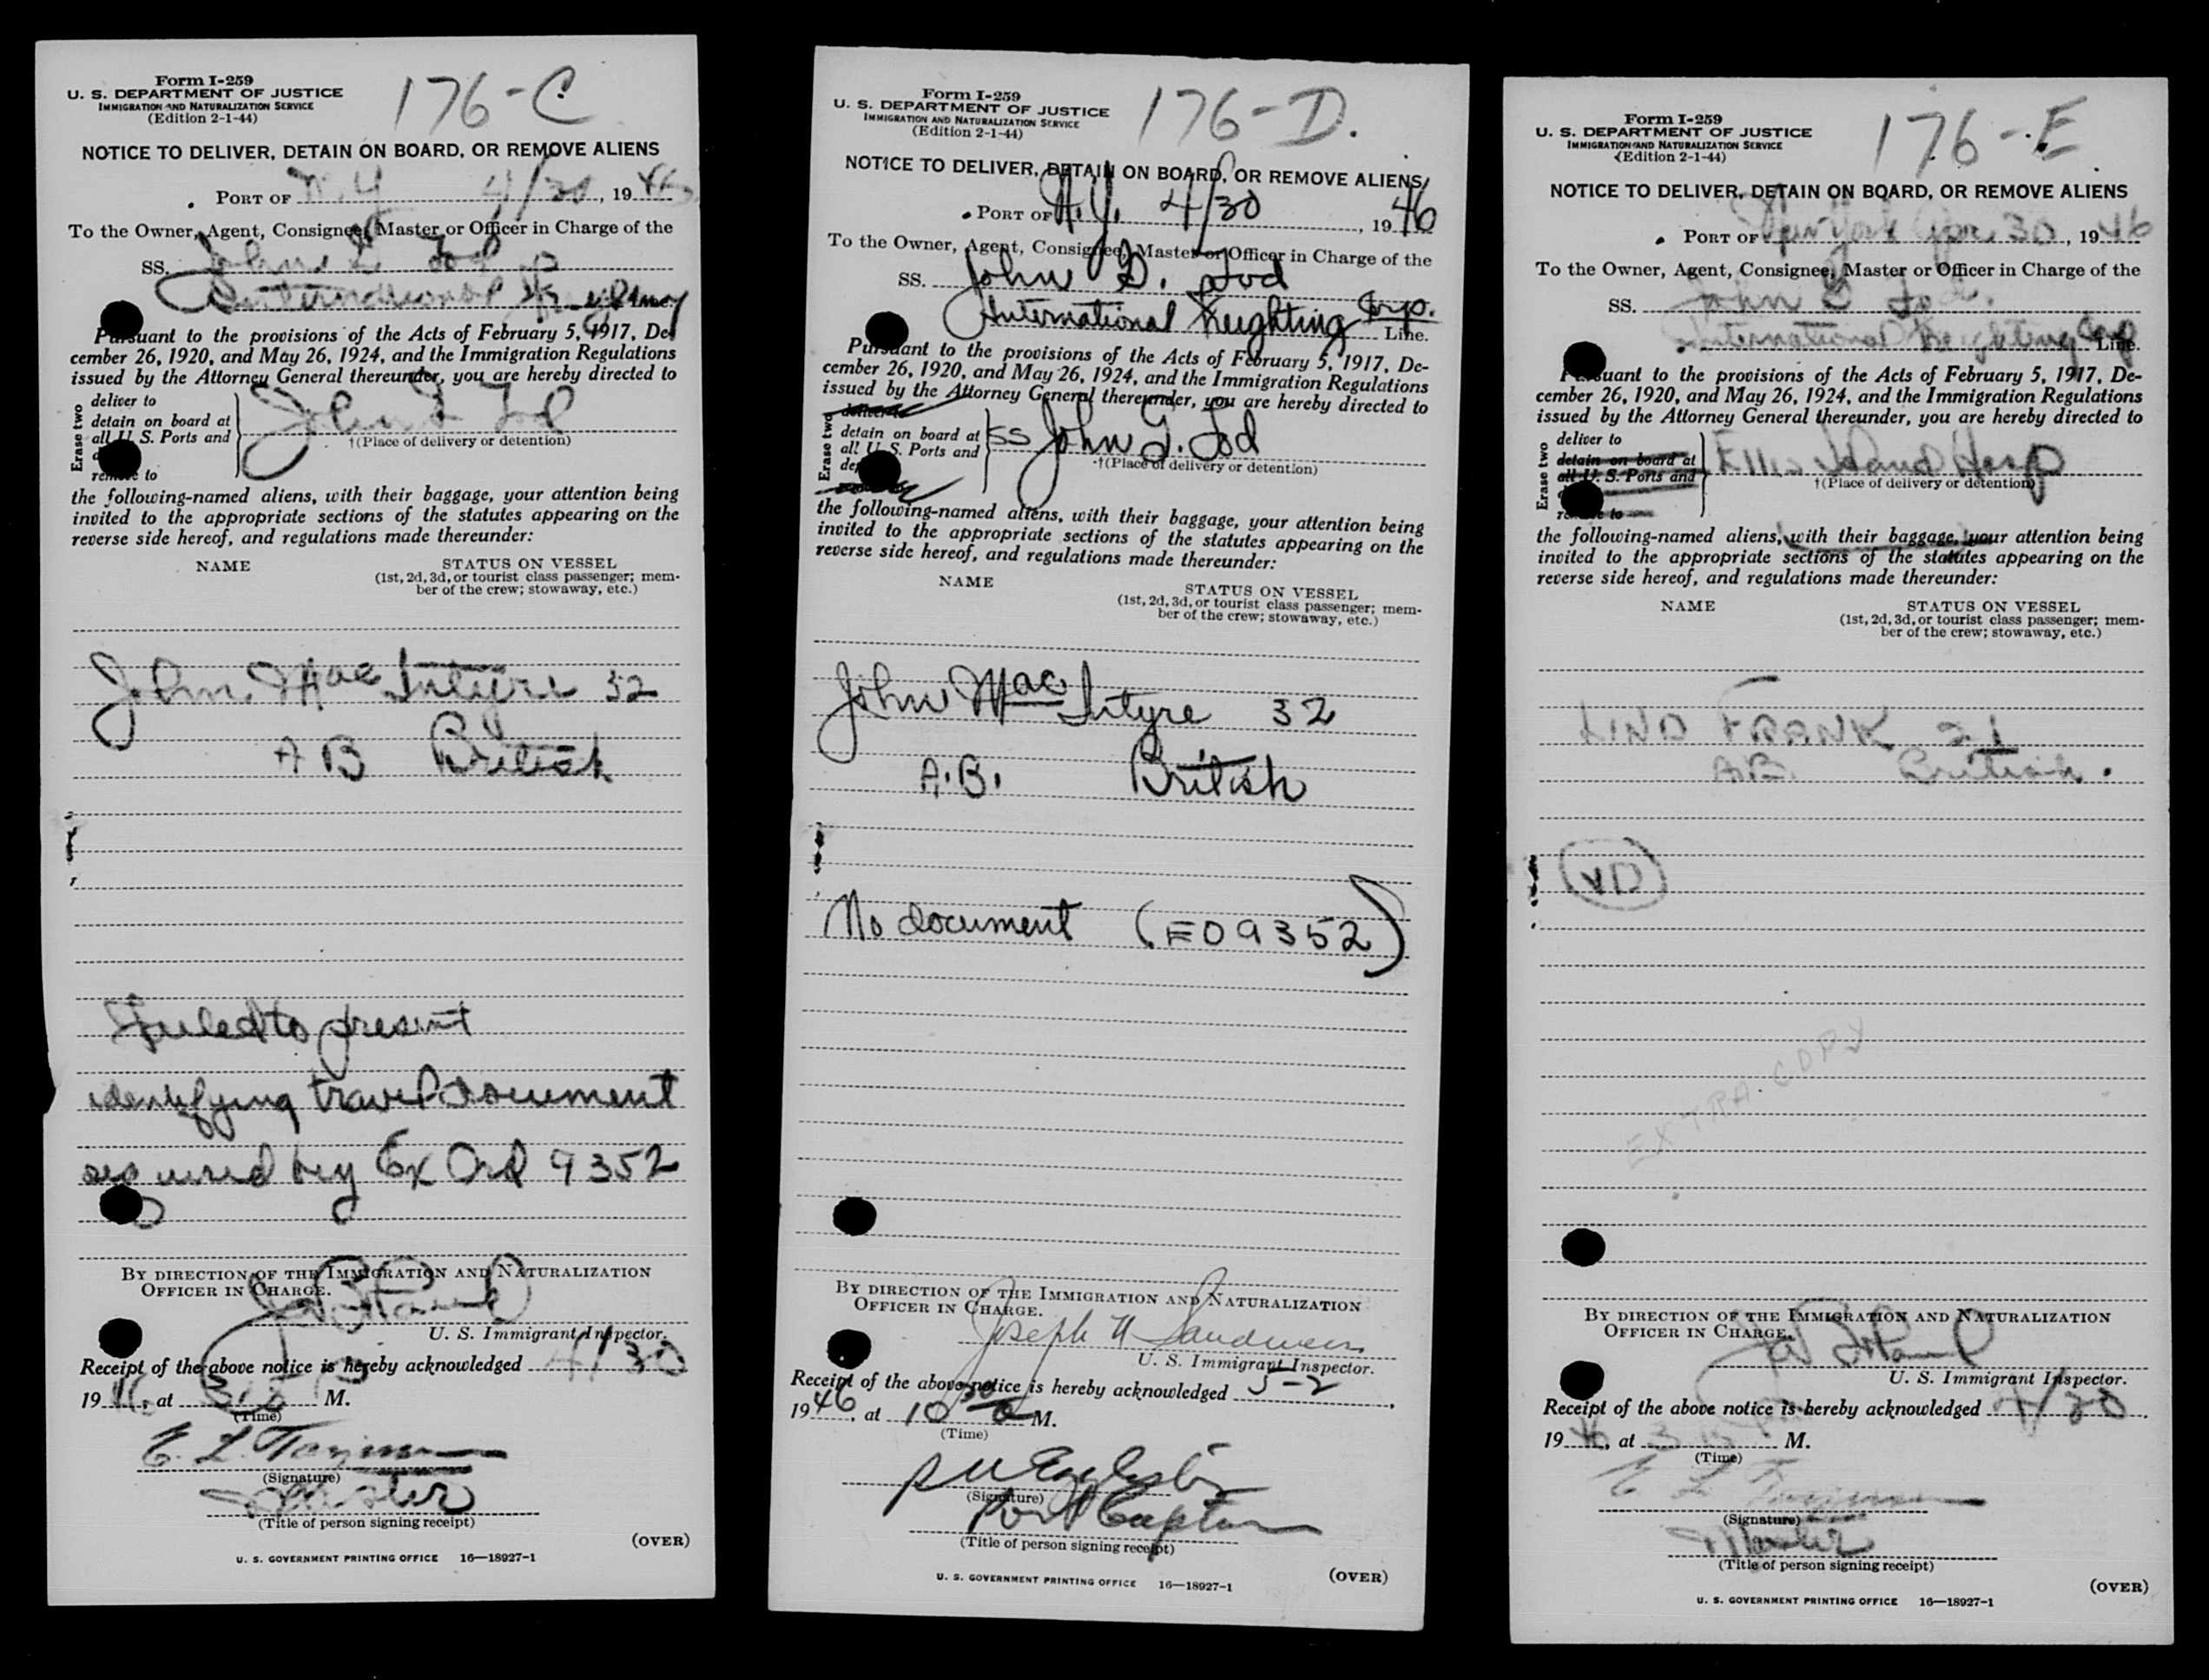 Form I-259
U. S. DEPARTMENT OF JUSTICE
IMMIGRATION AND NATURALIZATION SERVICE
(Edition 2-1-44)
176-C
NOTICE TO DELIVER, DETAIN ON BOARD, OR REMOVE ALIENS
PORT OF N.Y 4/30, 1946
To the Owner, Agent, Consignee, Master or Officer in Charge of the
SS. John G Tod
International
Pursuant to the provisions of the Acts of February 5, 1917, De-
cember 26, 1920, and May 26, 1924, and the Immigration Regulations
issued by the Attorney General thereunder, you are hereby directed to
Erase two
deliver to
detain on board at
all U. S. Ports and
remove to
John G Tod
†(Place of delivery or detention)
the following-named aliens, with their baggage, your attention being
invited to the appropriate sections of the statutes appearing on the
reverse side hereof, and regulations made thereunder:
NAME STATUS ON VESSEL
(1st, 2d, 3d, or tourist class passenger; mem-
ber of the crew; stowaway, etc.)
John MacIntyre 32
AB British
Failed to present
identifying travel document
required by Ex Ord 9352
BY DIRECTION OF THE IMMIGRATION AND NATURALIZATION
OFFICER IN CHARGE.
U. S. Immigrant Inspector.
Receipt of the above notice is hereby acknowledged 4/30
1946, at M.
(Time)
E. L.
(Signature)
Master
(Title of person signing receipt)
(OVER)
U. S. GOVERNMENT PRINTING OFFICE 16—18927-1
Form I-259
U. S. DEPARTMENT OF JUSTICE
IMMIGRATION AND NATURALIZATION SERVICE
(Edition 2-1-44)
176-D.
NOTICE TO DELIVER, DETAIN ON BOARD, OR REMOVE ALIENS
PORT OF N.Y. 4/30 1946
To the Owner, Agent, Consignee, Master or Officer in Charge of the
SS. John G. Tod
International Freighting Corp. Line.
Pursuant to the provisions of the Acts of February 5, 1917, De-
cember 26, 1920, and May 26, 1924, and the Immigration Regulations
issued by the Attorney General thereunder, you are hereby directed to
Erase two
deliver to
detain on board at
all U. S. Ports and
SS John G. Tod
†(Place of delivery or detention)
the following-named aliens, with their baggage, your attention being
invited to the appropriate sections of the statutes appearing on the
reverse side hereof, and regulations made thereunder:
NAME STATUS ON VESSEL
(1st, 2d, 3d, or tourist class passenger; mem-
ber of the crew; stowaway, etc.)
John MacIntyre 32
A.B. British
No document (EO 9352)
BY DIRECTION OF THE IMMIGRATION AND NATURALIZATION
OFFICER IN CHARGE.
Joseph
U. S. Immigrant Inspector.
Receipt of the above notice is hereby acknowledged 5-2
1946, at 10 30 a M.
(Time)
(Signature)
Port Captain
(Title of person signing receipt)
(OVER)
U. S. GOVERNMENT PRINTING OFFICE 16—18927-1
Form I-259
U. S. DEPARTMENT OF JUSTICE
IMMIGRATION AND NATURALIZATION SERVICE
(Edition 2-1-44)
176-E
NOTICE TO DELIVER, DETAIN ON BOARD, OR REMOVE ALIENS
PORT OF New York Apr 30, 1946
To the Owner, Agent, Consignee, Master or Officer in Charge of the
SS. John G Tod.
International Freighting Corp Line.
Pursuant to the provisions of the Acts of February 5, 1917, De-
cember 26, 1920, and May 26, 1924, and the Immigration Regulations
issued by the Attorney General thereunder, you are hereby directed to
Erase two
deliver to
detain on board at
all U. S. Ports and
remove to
Ellis Island Hosp
†(Place of delivery or detention)
the following-named aliens, with their baggage, your attention being
invited to the appropriate sections of the statutes appearing on the
reverse side hereof, and regulations made thereunder:
NAME STATUS ON VESSEL
(1st, 2d, 3d, or tourist class passenger; mem-
ber of the crew; stowaway, etc.)
LIND FRANK 21
A.B. British.
VD
EXTRA COPY
BY DIRECTION OF THE IMMIGRATION AND NATURALIZATION
OFFICER IN CHARGE.
U. S. Immigrant Inspector.
Receipt of the above notice is hereby acknowledged 4/30,
1946, at 3 15 M.
(Time)
E L
(Signature)
Master
(Title of person signing receipt)
(OVER)
U. S. GOVERNMENT PRINTING OFFICE 16—18927-1